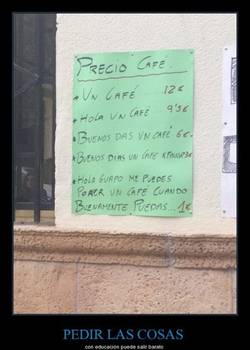 PRECIO CAFÉ.
* UN CAFÉ 12€
* HOLA UN CAFÉ 9'5€
* BUENOS DIAS UN CAFÉ 6€.
* BUENOS DIAS UN CAFE 3€
* HOLA GUAPO ME PUEDES
PONER UN CAFE CUANDO
BUENAMENTE PUEDAS... 1€
PEDIR LAS COSAS
con educación puede salir barato